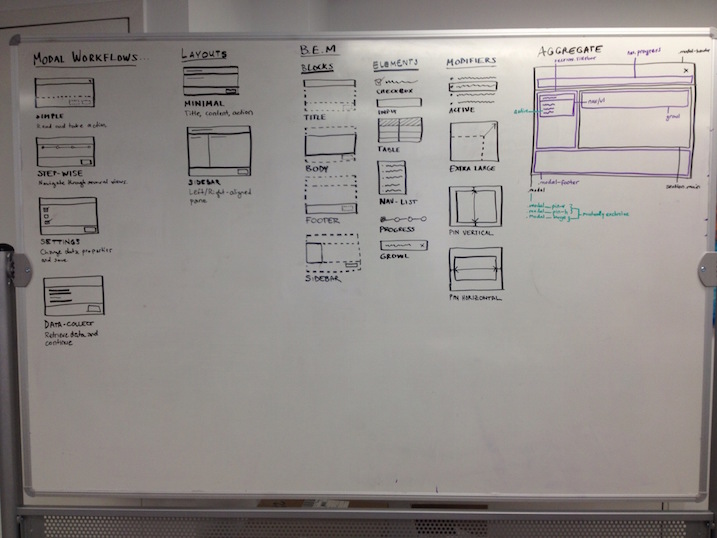 MODAL WORKFLOWS...
SIMPLE
Read and take action.
STEP-WISE
Navigate through several views.
SETTINGS
Change data properties
and save
DATA-COLLECT
Retrieve data and
continue
LAYOUTS
MINIMAL
Title, content, actions
SIDEBAR
Left/Right-aligned
pane
B.E.M
BLOCKS
TITLE
BODY
FOOTER
SIDEBAR
ELEMENTS
CHECKBOX
INPUT
TABLE
NAV-LIST
PROGRESS
GROWL
MODIFIERS
ACTIVE
EXTRA LARGE
PIN VERTICAL
PIN HORIZONTAL
AGGREGATE
nav.progress
modal-header
section.sidebar
nav/ul
active
growl
modal-footer
section.main
modal
mutually exclusive